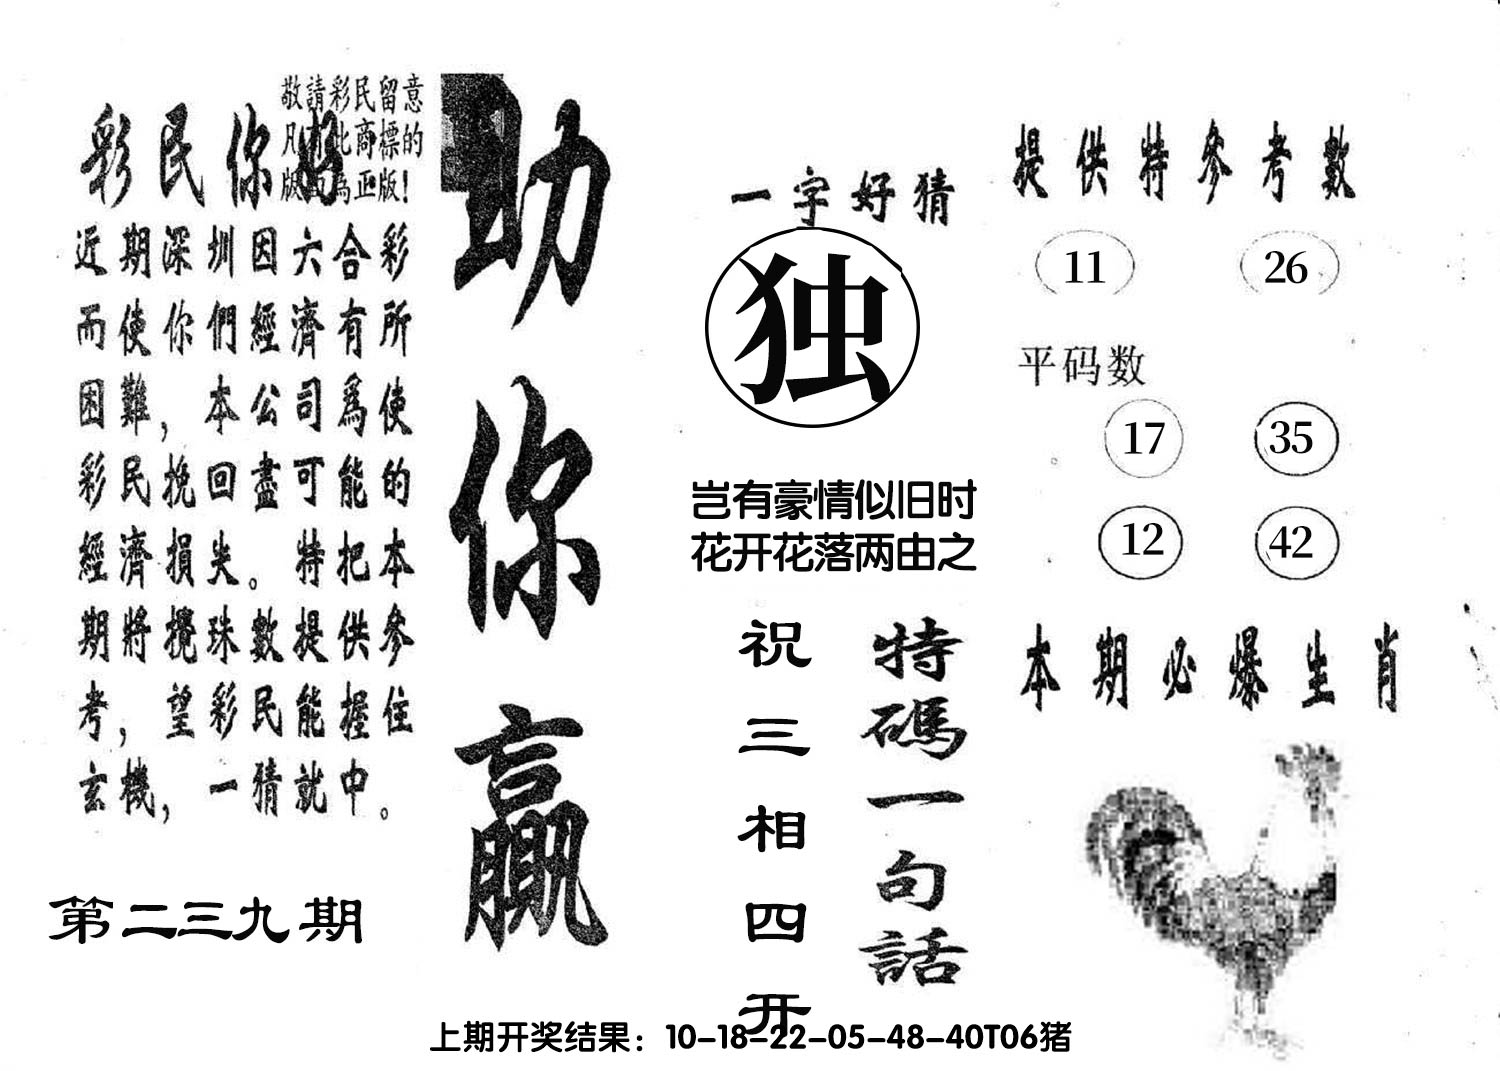 敬請彩民留意
凡有此商標的
版面為正版!
彩民你好
近期深圳因六合彩
而使你們經濟有所
困難，本公司爲使
彩民挽回盡可能的
經濟損失。特把本
期將攪珠數提供參
考，望彩民能握住
玄機，一猜就中。
第二三九期
助你赢
一字好猜
独
岂有豪情似旧时
花开花落两由之
特碼一句話
祝三相四开
提供特参考數
11 26
平码数
17 35
12 42
本期必爆生肖
上期开奖结果：10-18-22-05-48-40T06猪